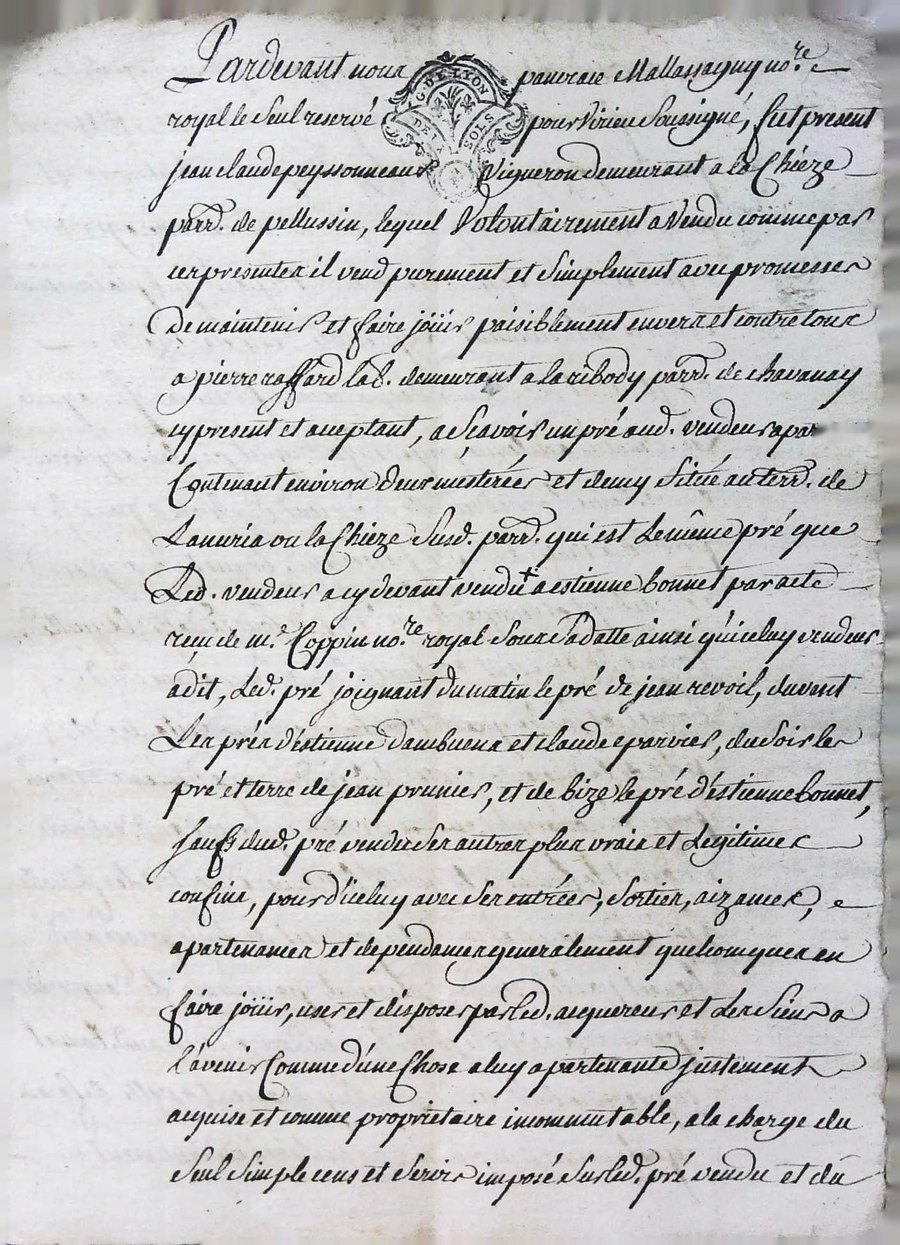 Pardevant nous pancrace Mallassagny no.re
royal le Seul reservé pour Virieu Soussigné, fut present
jean claude peyssonneaux Vigneron demeurant a la Chieze
parr. de pellussin, lequel Volontairement a Vendu comme par
ces presentes il vend purement et Simplement avec promesses
de maintenir et faire joüir paisiblement envers et contre tous
a pierre raffard lab. demeurant a la ribody parr. de chavanay
cy present et acceptant, a Scavoir un pré aud. vendeur apar
Contenant environ deux mesterées et demy Situé au terr. de
Lanuria ou la Chieze Susd. parr. qui est Le même pré que
Led. vendeur a cy devant vendu + a estienne bonnet par acte
reçu de m.e Coppin no.re royal Sous Sa datte ainsi qu'iceluy vendeur
a dit, Led. pré joignant du matin le pré de jean revoil, du vent
Les prés d'estienne dambuena et claude eparvier, du Soir les
pré et terre de jean prunier, et de bize le pré d'estienne bonnet,
Sauf dud. pré vendu Ses autres plus vrais et Legitimes
confins, pour d'iceluy avec Ses entrées, Sorties, aizances,
apartenances et dependances generalement quelconques en
faire joüir, user et disposer par led. acquereur et Les Siens a
l'avenir Comme d'une Chose a luy apartenante justement
acquise et comme proprietaire incommutable, a la charge du
Seul Simple cens et Servis imposé Sur led. pré vendu et du
G. DE LYON
DEUX SOLS